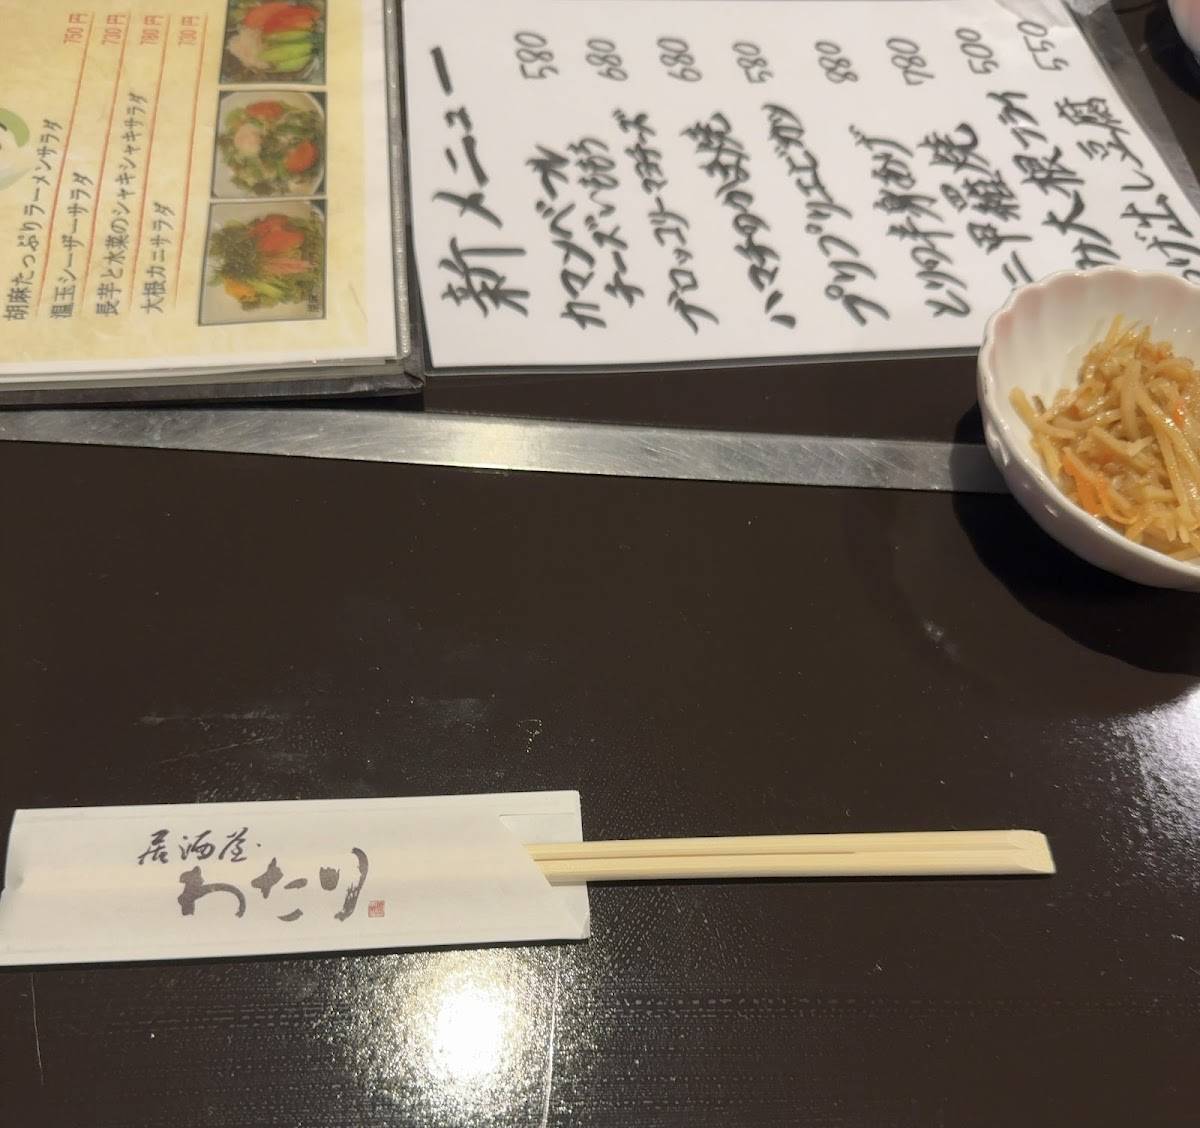 胡麻たっぷりラーメンサラダ 750円
温玉シーザーサラダ 730円
長芋と水菜のシャキシャキサラダ 780円
大根カニサラダ 730円
新メニュー
カマンベール
チーズいももち 680
ブロッコリーマヨチーズ 680
ハマチのカマ焼 580
プリプリエビカツ 880
とりの半身あげ 780
甲羅焼 500
大根フライ 550
出し豆腐
580
居酒屋
わたり